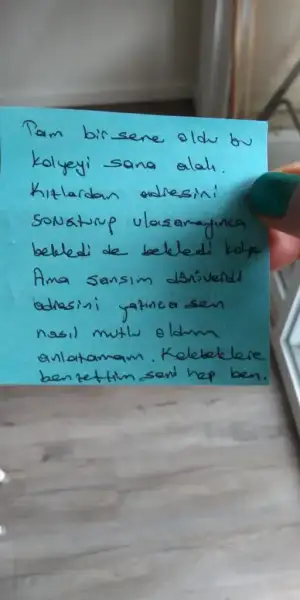 Tam bir sene oldu bu
kolyeyi sana alalı.
Kızlardan adresini
soruşturup ulaşamayınca
bekledi de bekledi kolye
Ama şansım dönüverdi
adresini yazınca sen
nasıl mutlu oldum
anlatamam. Kelebeklere
benzettim seni hep ben.